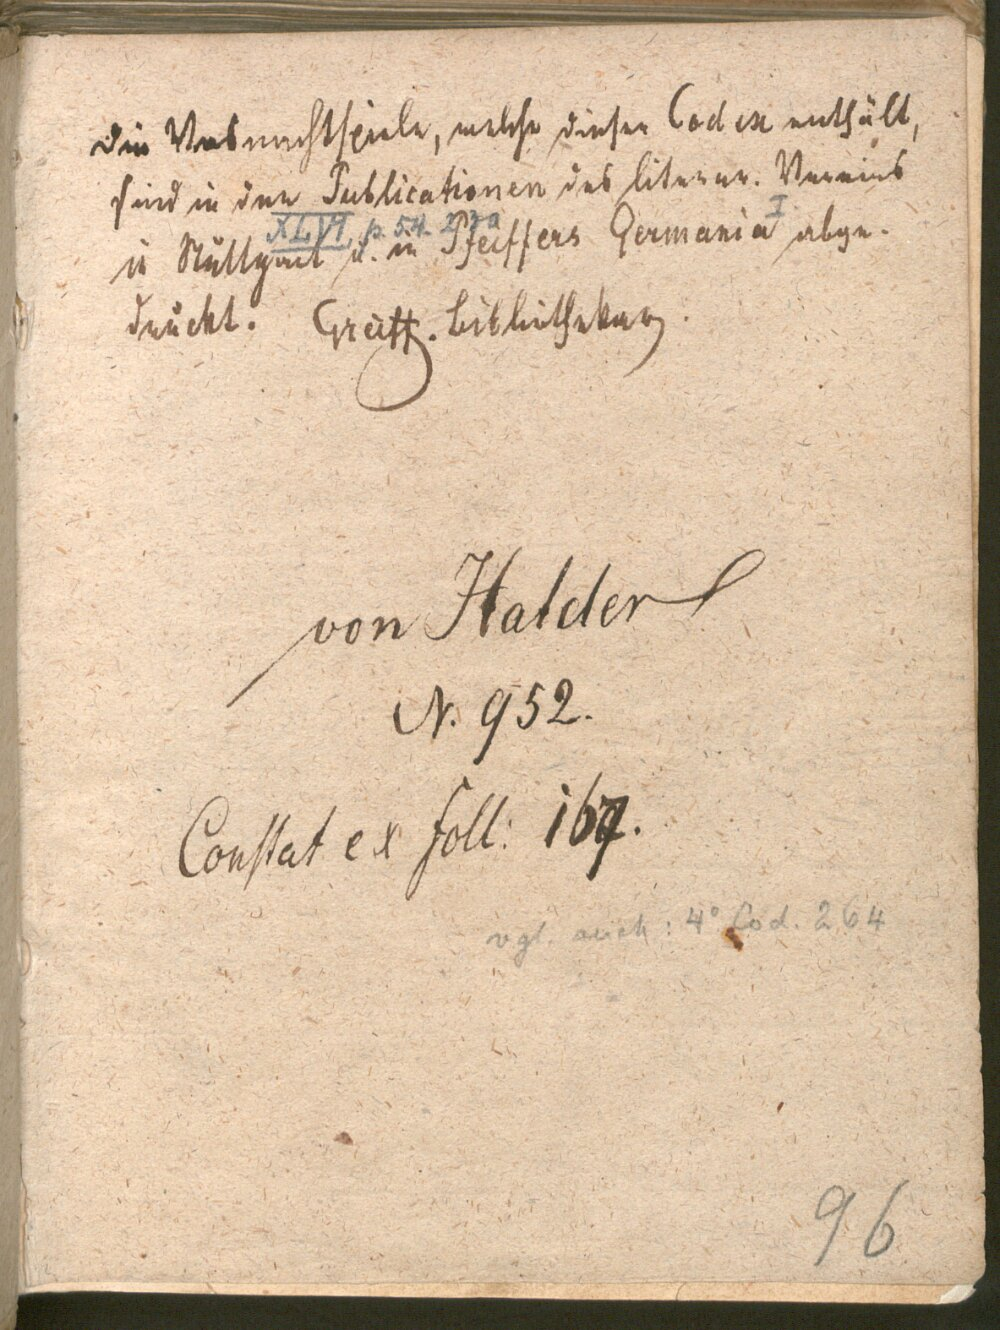 Die Vasnachtspiele, welche dieser Codex enthält,
sind in den Publicationen des literar. Vereins
XLVI, p. 54. 230 I.
in Stuttgart u. in Pfeiffers Germania abge-
druckt. Greiff. Bibliothekar
von Halder
N. 952.
Constat ex foll: 167.
vgl. auch: 4° Cod. 264
96